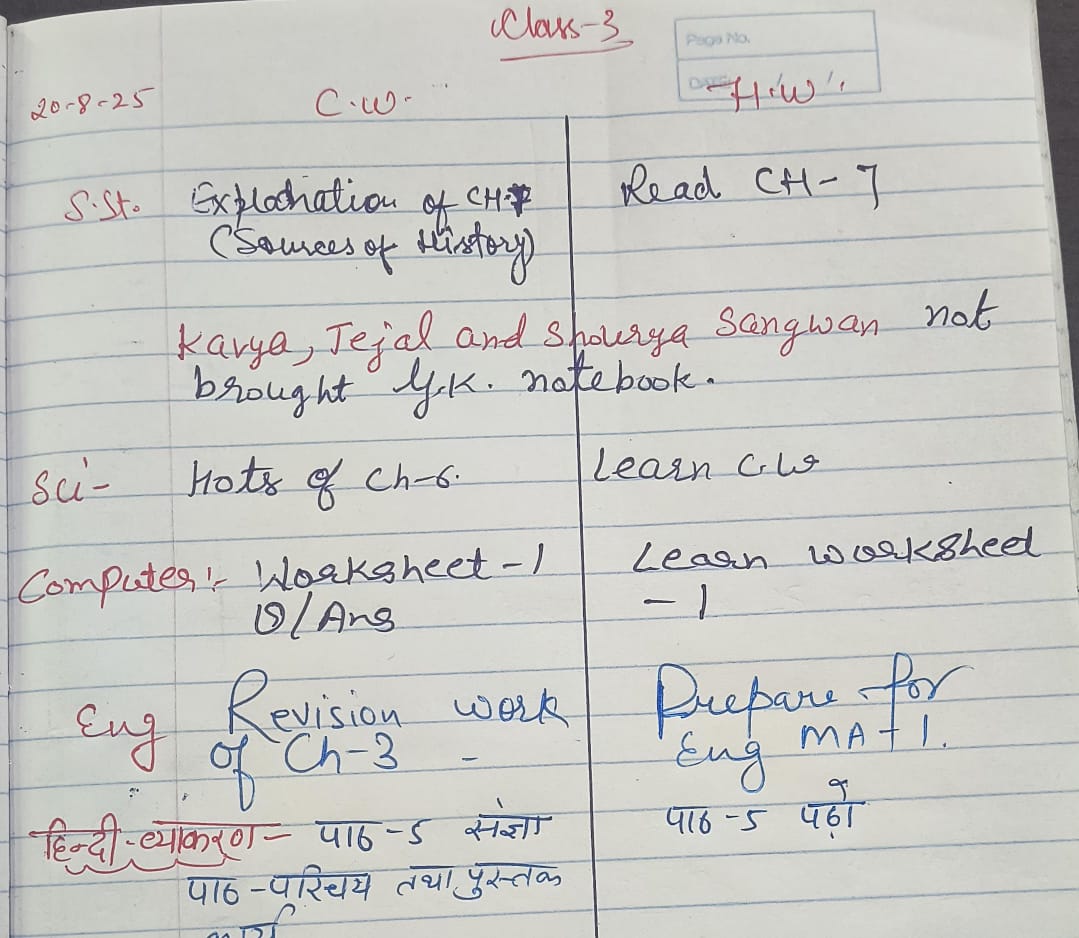 Class-3
Page No.
DATE
20-8-25 C.W. H.W.
S.St. Explanation of CH-7 Read CH-7
(Sources of History)
Kavya, Tejal and Shourya Sangwan not
brought G.K. notebook.
Sci- Hots of Ch-6. Learn C.W
Computer:- Worksheet-1 Learn worksheet
Q/Ans -1
Eng Revision work Prepare for
of Ch-3 - Eng MAT 1.
हिन्दी-व्याकरण- पाठ-5 संज्ञा पाठ-5 पढ़ो
पाठ-परिचय तथा पुस्तक